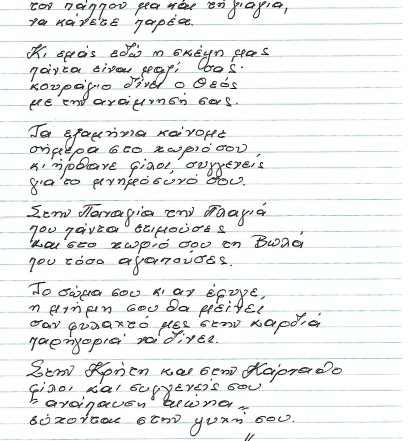 τον πάππου μα και τη γιαγιά,
να κάνετε παρέα.
Κι εμάς εδώ η σκέψη μας
πάντα είναι μαζί σας.
κουράγιο δίνει ο Θεός
με την ανάμνησή σας.
Τα εξαμήνια κάνομε
σήμερα στο χωριό σου
κι ήρθανε φίλοι, συγγενείς
για το μνημόσυνό σου.
Στην Παναγία την Πλαγιά
που πάντα ετιμούσες
και στο χωριό σου τη Βωλά
που τόσο αγαπούσες.
Το σώμα σου κι αν έφυγε,
η μνήμη σου θα μείνει
σαν φυλαχτό μες στην καρδιά
παρηγοριά να δίνει.
Στην Κρήτη και στην Κάρπαθο
φίλοι και συγγενείς σου
"ανάπαυση αιώνια"
εύχονται στην ψυχή σου.